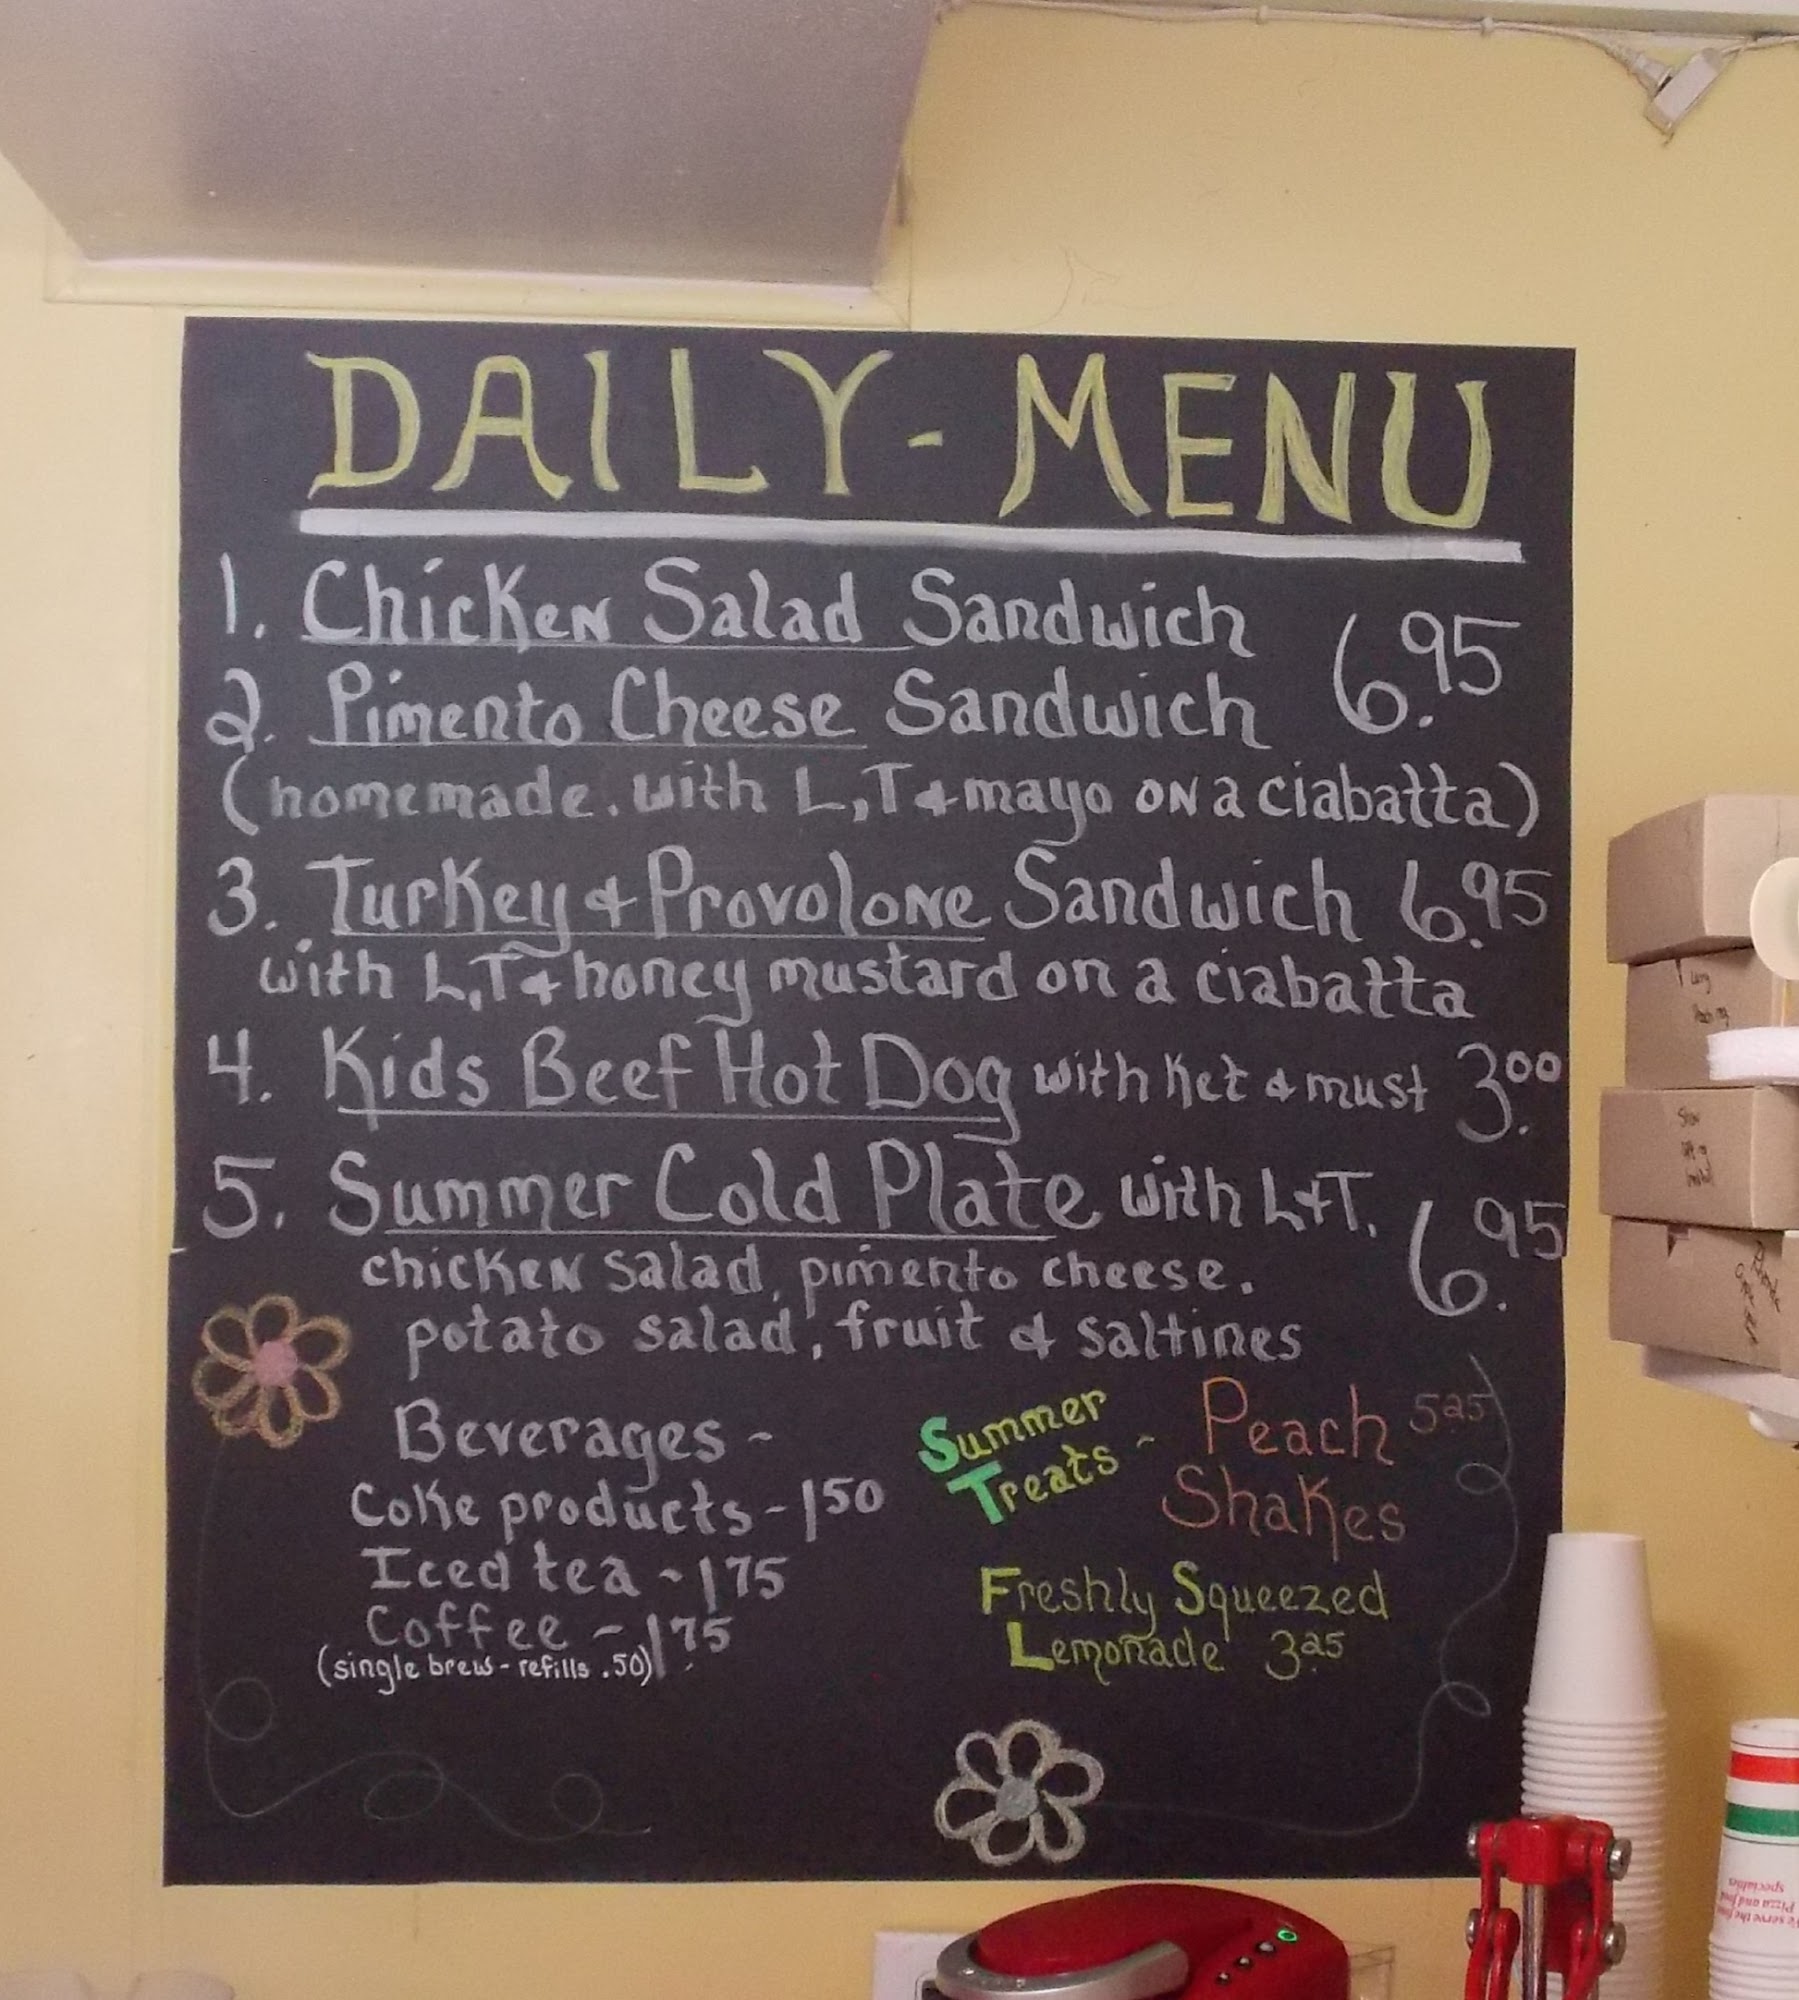 DAILY - MENU
1. Chicken Salad Sandwich
2. Pimento Cheese Sandwich 6.95
(homemade. with L,T & mayo on a ciabatta)
3. Turkey & Provolone Sandwich 6.95
with L,T & honey mustard on a ciabatta
4. Kids Beef Hot Dog with Ket & must 3.00
5. Summer Cold Plate with L&T. 6.95
chicken salad, pimento cheese.
potato salad, fruit & saltines
Beverages -
Coke products - 150
Iced tea - 175
Coffee - 1.75
(single brew - refills .50)
Summer
Treats -
Peach 5.25
Shakes
Freshly Squeezed
Lemonade 3.25
Pizza and food
specialties